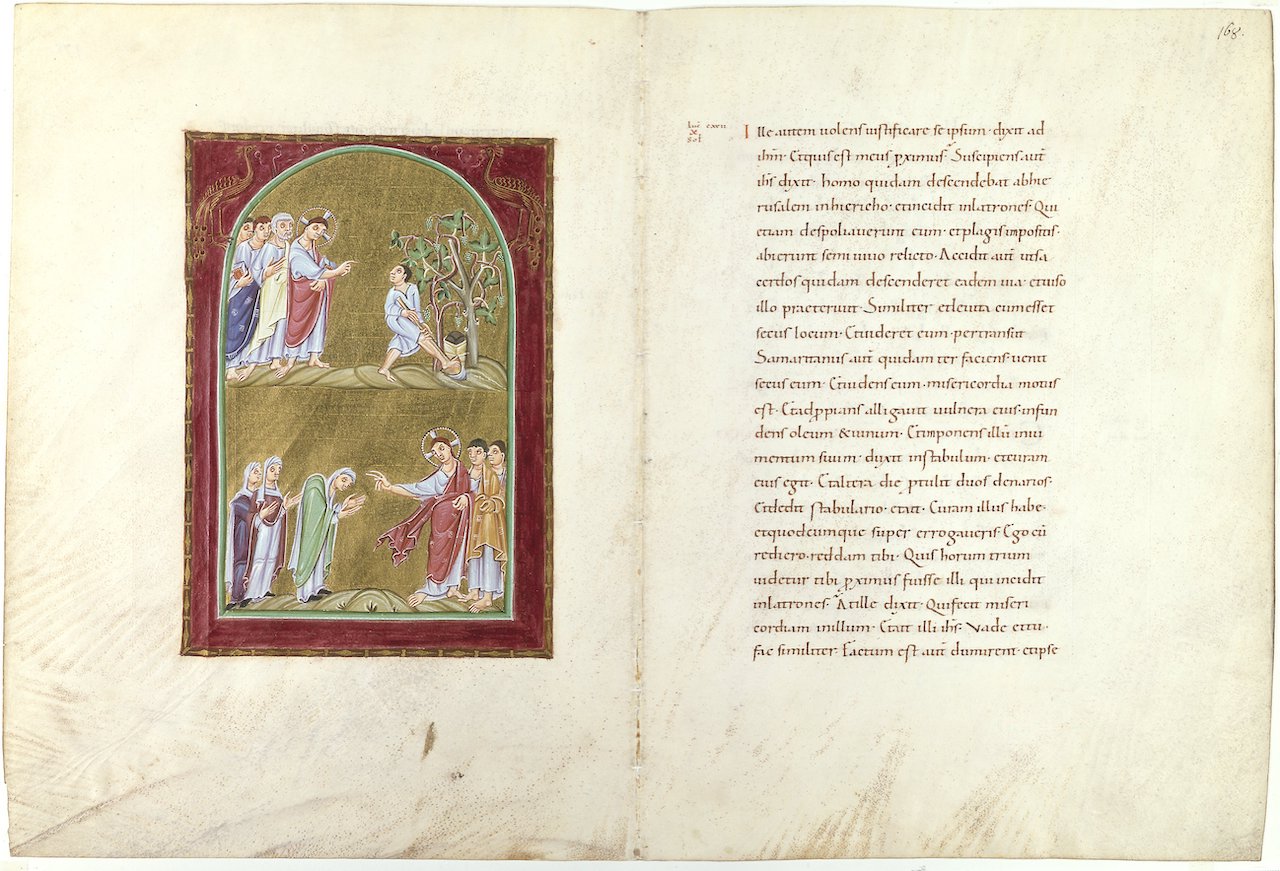 168.
luc cxxii
x
Sol
Ille autem uolens iustificare se ipsum· dixit ad
ihm̄· Et quis est meus pximus· Suscipiens aut̄
ihs dixit· homo quidam descendebat abhie
rusalem inhiericho· et incidit inlatrones· Qui
etiam despoliauerunt eum· et plagis impositis·
abierunt semi uiuo relicto· Accidit aut̄ ut sa
cerdos quidam descenderet eadem uia· et uiso
illo praeteriuit· Similiter et leuita cum esset
secus locum· Et uideret eum· pertransiit
Samaritanus aut̄ quidam iter faciens uenit
secus eum· Et uidens eum· misericordia motus
est· Et adppians alligauit uulnera eius· infun
dens oleum & uinum· Et imponens illū in iu
mentum suum· duxit in stabulum· et curam
eius egit· Et altera die ptulit duos denarios·
Et dedit stabulario· et ait· Curam illius habe·
et quodcumque super errogaueris· Ego cū
rediero· reddam tibi· Quis horum trium
uidetur tibi pximus fuisse illi qui incidit
inlatrones· At ille dixit· Qui fecit miseri
cordiam in illum· Et ait illi ihs· Vade et tu·
fac similiter· Factum est aut̄ dum irent· et ipse